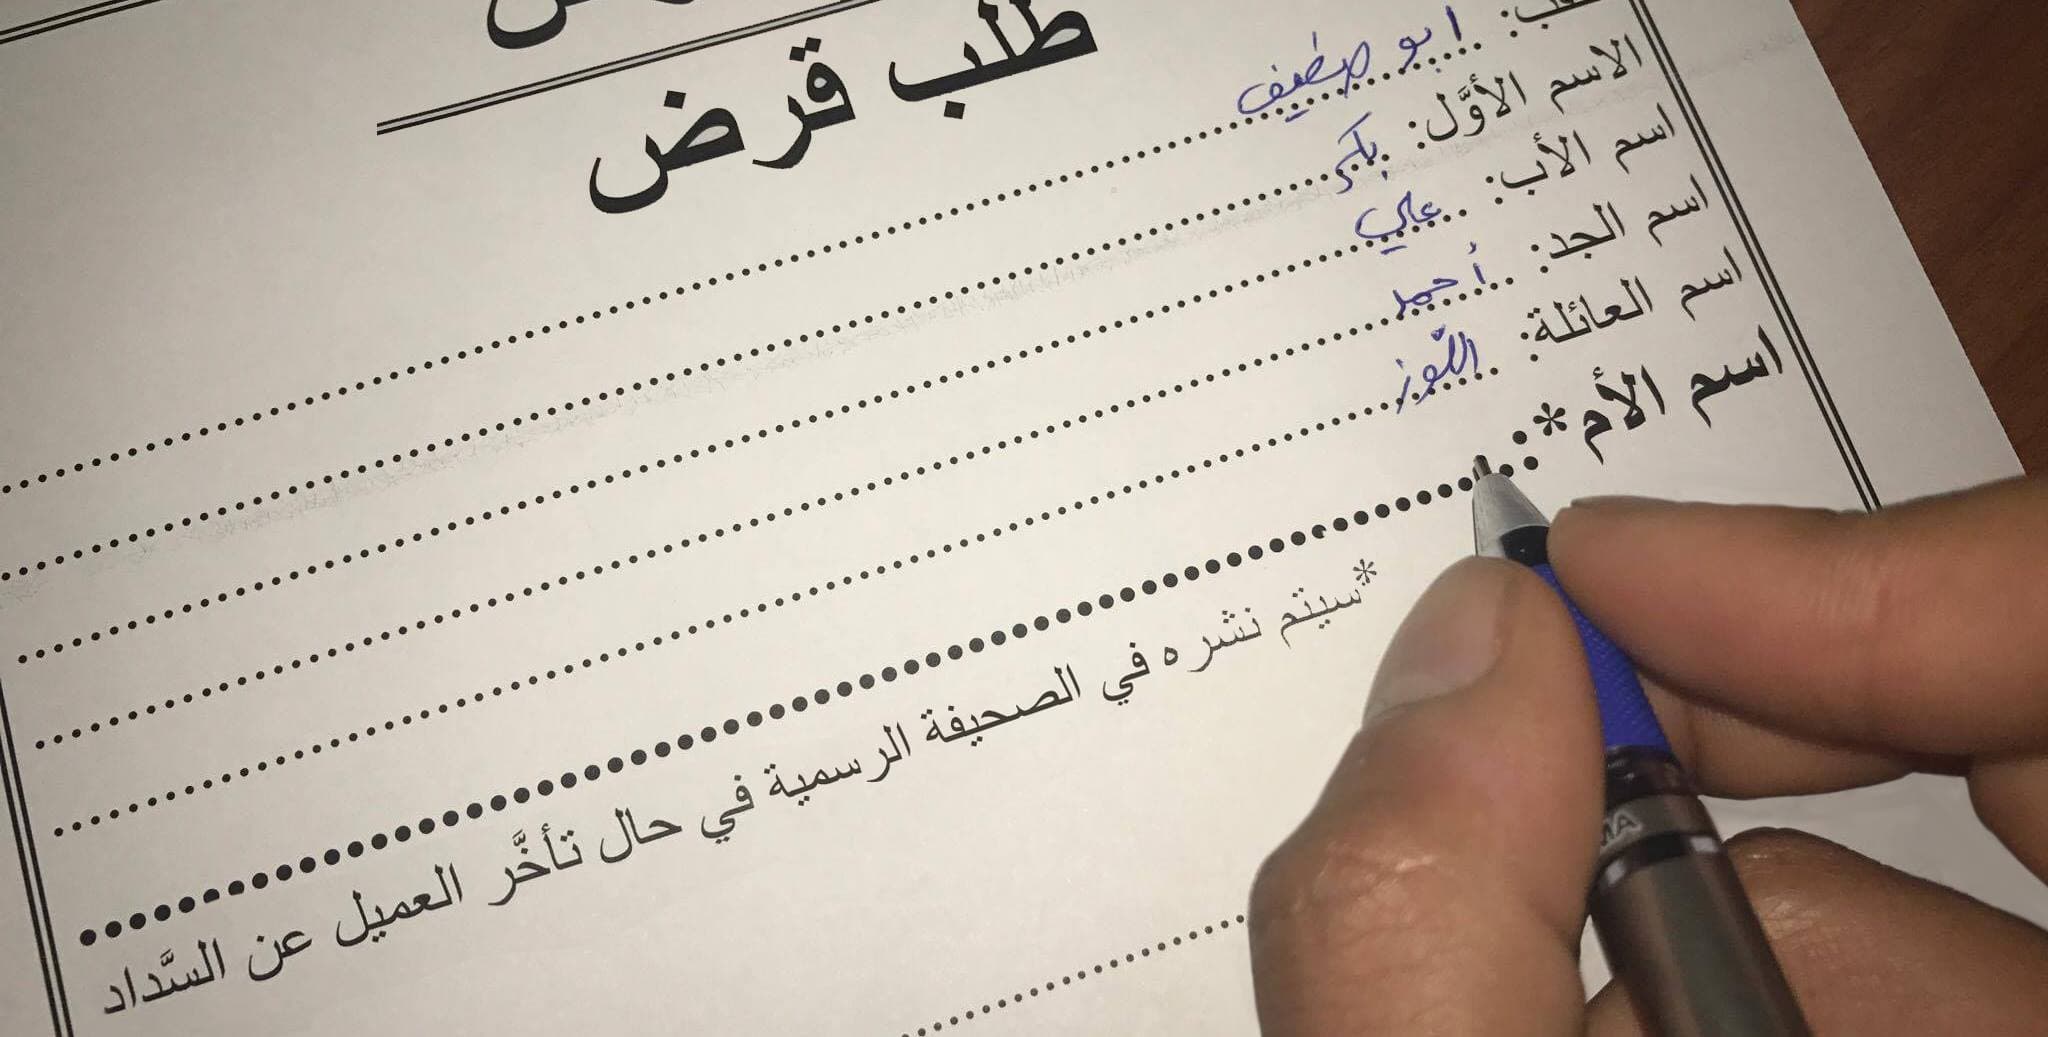 طلب قرض
ابو
الاسم الأوَّل: بكر
اسم الأب: علي
اسم الجد: أحمد
اسم العائلة: اللّوز
اسم الأم*:
*سيتم نشره في الصحيفة الرسمية في حال تأخَّر العميل عن السَّداد